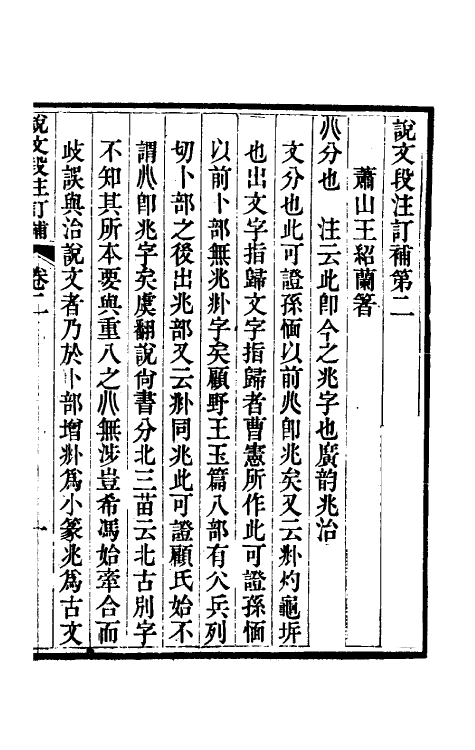 說文段注訂補第二
蕭山王紹蘭著
㕣分也　注云此卽今之兆字也廣韵兆治
文分也此可證孫愐以前㕣卽兆矣又云𠧞灼龜坼
也出文字指歸文字指歸者曹憲所作此可證孫愐
以前卜部無兆𠧞字矣顧野王玉篇八部有㕣兵列
切卜部之後出兆部又云𠧞同兆此可證顧氏始不
謂㕣卽兆字矣虞翻說尙書分北三苗云北古別字
不知其所本要與重八之㕣無涉豈希馮始牽合而
歧誤與治說文者乃於卜部增𠧞爲小篆兆爲古文
說文段注訂補
卷二
一